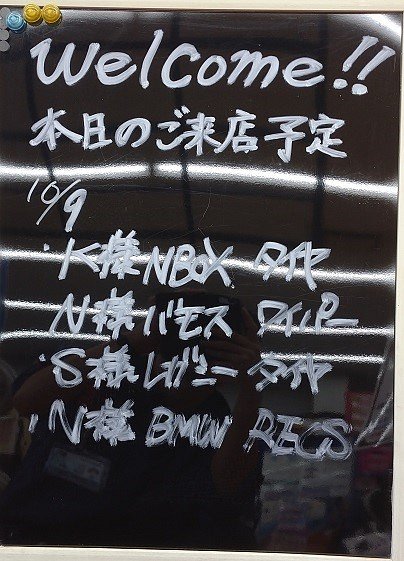 Welcome!!
本日のご来店予定
10/9
・K様 NBOX タイヤ
・N様 バモス ワイパー
・S様 レガシー タイヤ
・N様 BMW RECS